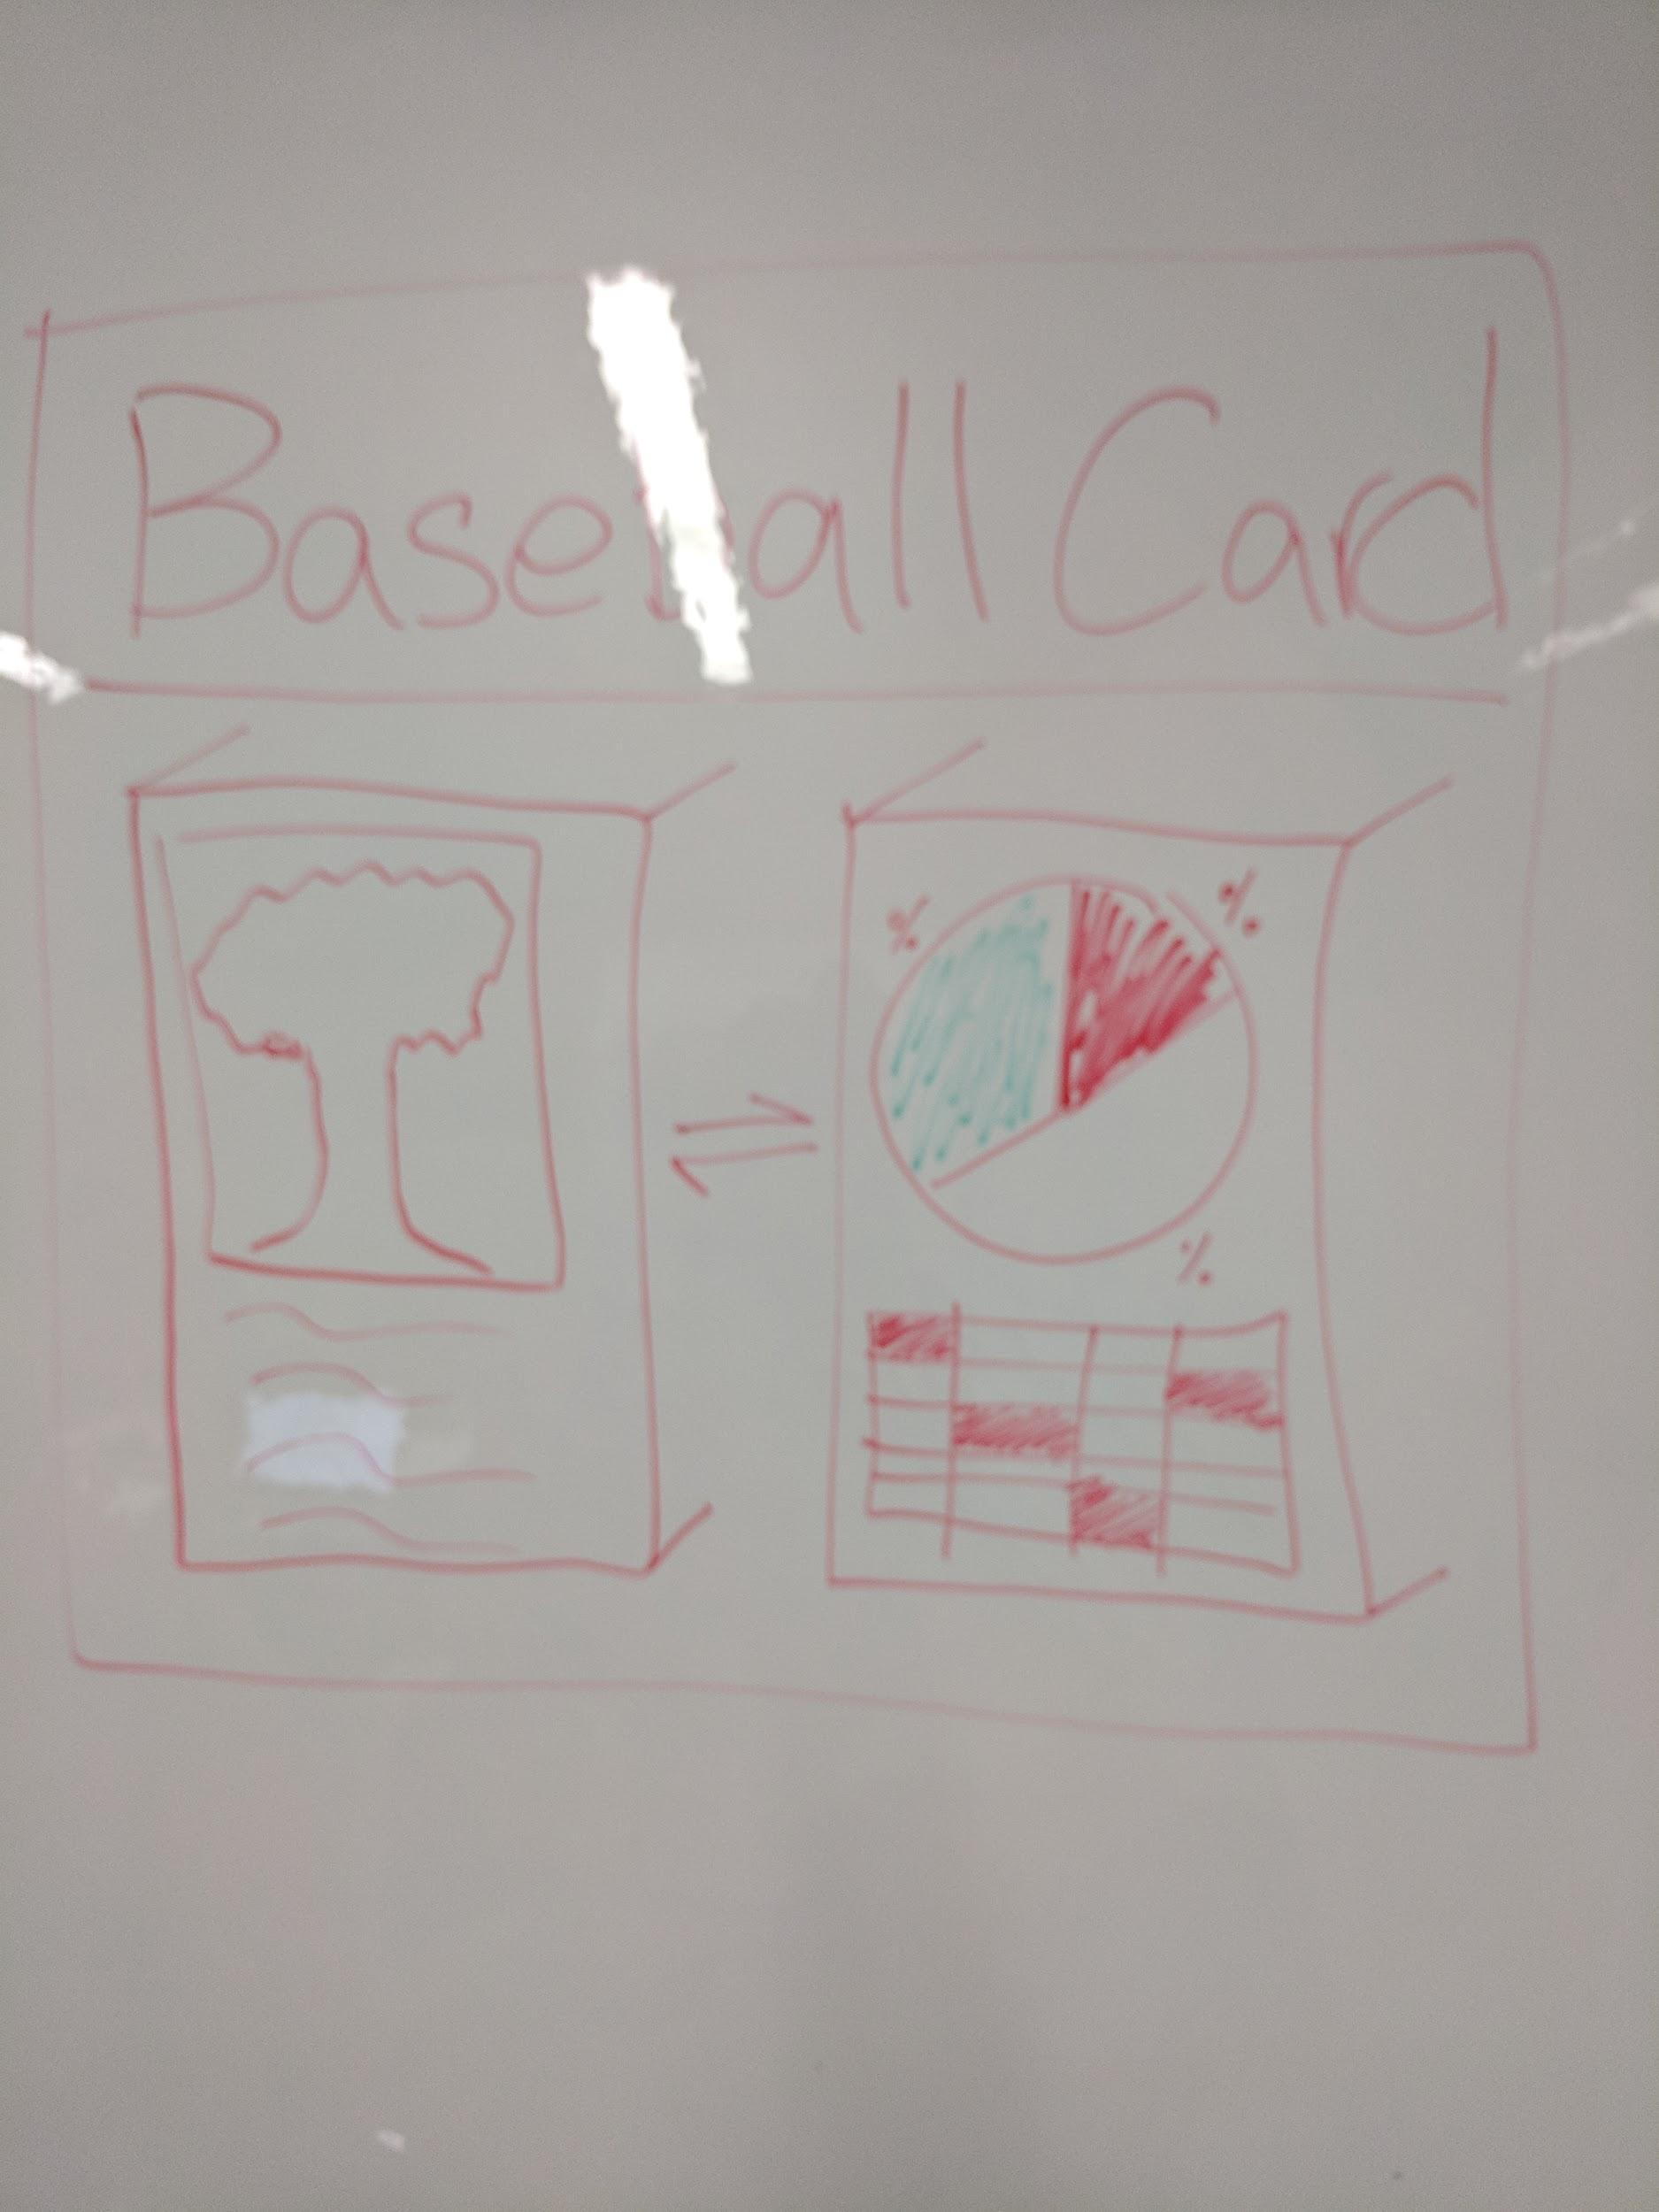 Baseball Card
%
%
%